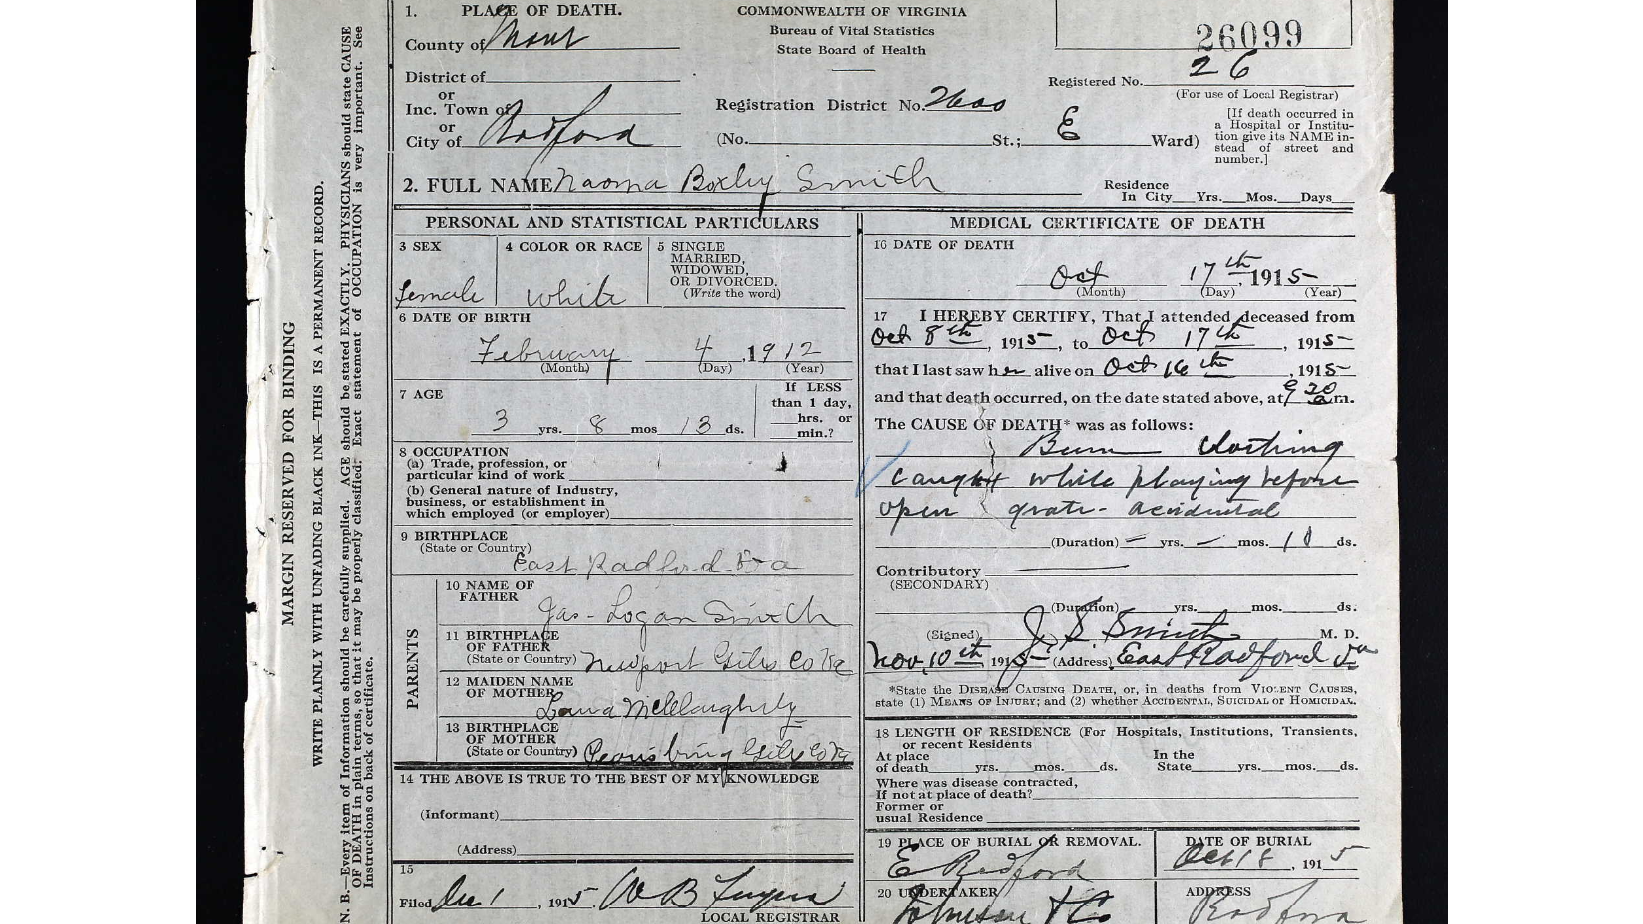 1. PLACE OF DEATH.
County of Mont
District of
or
Inc. Town of
or
City of Radford
COMMONWEALTH OF VIRGINIA
Bureau of Vital Statistics
State Board of Health
Registration District No. 2600
(No. St.; E Ward)
26099
Registered No. 26
(For use of Local Registrar)
[If death occurred in
a Hospital or Institu-
tion give its NAME in-
stead of street and
number.]
2. FULL NAME Naoma Boxley Smith
Residence
In City Yrs. Mos. Days
PERSONAL AND STATISTICAL PARTICULARS
3 SEX
female
4 COLOR OR RACE
white
5 SINGLE
MARRIED,
WIDOWED,
OR DIVORCED.
(Write the word)
6 DATE OF BIRTH
February 4, 1912
(Month) (Day) (Year)
7 AGE
3 yrs. 8 mos 13 ds.
If LESS
than 1 day,
hrs. or
min.?
8 OCCUPATION
(a) Trade, profession, or
particular kind of work
(b) General nature of Industry,
business, or establishment in
which employed (or employer)
9 BIRTHPLACE
(State or Country)
East Radford Va
PARENTS
10 NAME OF
FATHER
Jas- Logan Smith
11 BIRTHPLACE
OF FATHER
(State or Country) Newport Giles Co Va
12 MAIDEN NAME
OF MOTHER
13 BIRTHPLACE
OF MOTHER
(State or Country) Pearisburg Giles Co Va
14 THE ABOVE IS TRUE TO THE BEST OF MY KNOWLEDGE
(Informant)
(Address)
15
Filed Dec 1, 1915 W B
LOCAL REGISTRAR
MEDICAL CERTIFICATE OF DEATH
16 DATE OF DEATH
Oct 17th, 1915
(Month) (Day) (Year)
17 I HEREBY CERTIFY, That I attended deceased from
Oct 8th, 1915, to Oct 17th, 1915
that I last saw her alive on Oct 16th, 1915
and that death occurred, on the date stated above, at 9 30 a m.
The CAUSE OF DEATH* was as follows:
Burn clothing
caught while playing before
open grate - accidental
(Duration) — yrs. — mos. 10 ds.
Contributory
(SECONDARY)
(Duration) yrs. mos. ds.
(Signed) J. S. Smith M. D.
Nov 10th 1915 (Address) East Radford Va
*State the DISEASE CAUSING DEATH, or, in deaths from VIOLENT CAUSES,
state (1) MEANS OF INJURY; and (2) whether ACCIDENTAL, SUICIDAL or HOMICIDAL.
18 LENGTH OF RESIDENCE (For Hospitals, Institutions, Transients,
or recent Residents
At place
of death yrs. mos. ds.
In the
State yrs. mos. ds.
Where was disease contracted,
If not at place of death?
Former or
usual Residence
19 PLACE OF BURIAL OR REMOVAL.
E Radford
DATE OF BURIAL
Oct 18, 1915
20 UNDERTAKER
Johnson & Co
ADDRESS
Radford
MARGIN RESERVED FOR BINDING
WRITE PLAINLY WITH UNFADING BLACK INK—THIS IS A PERMANENT RECORD.
N. B.—Every item of Information should be carefully supplied. AGE should be stated EXACTLY. PHYSICIANS should state CAUSE
OF DEATH in plain terms, so that it may be properly classified. Exact statement of OCCUPATION is very important. See
Instructions on back of certificate.